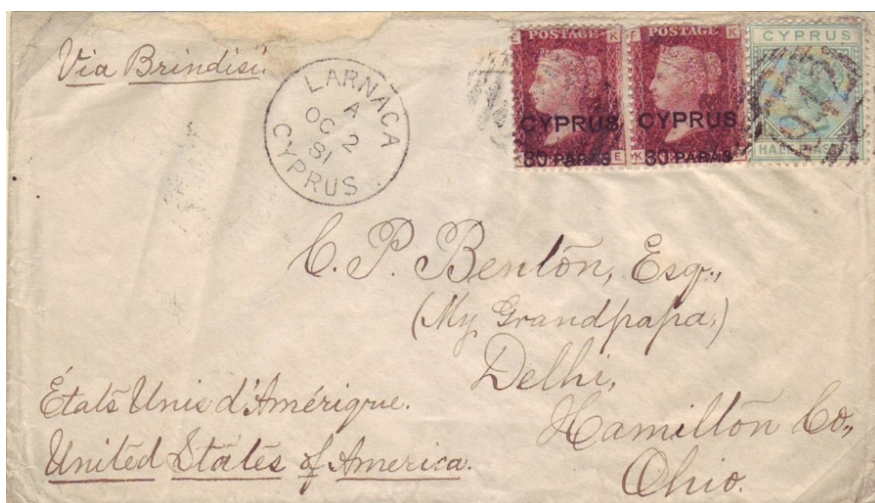 Via Brindisi.
LARNACA
A
OC 2
81
CYPRUS
E K
POSTAGE
CYPRUS
30 PARAS
K E
F K
POSTAGE
CYPRUS
30 PARAS
K
CYPRUS
942
HALF PIASTRE
C. P. Benton, Esq.,
(My Grandpapa,)
Delhi,
Hamilton Co.,
Ohio.
États Unis d'Amérique.
United States of America.